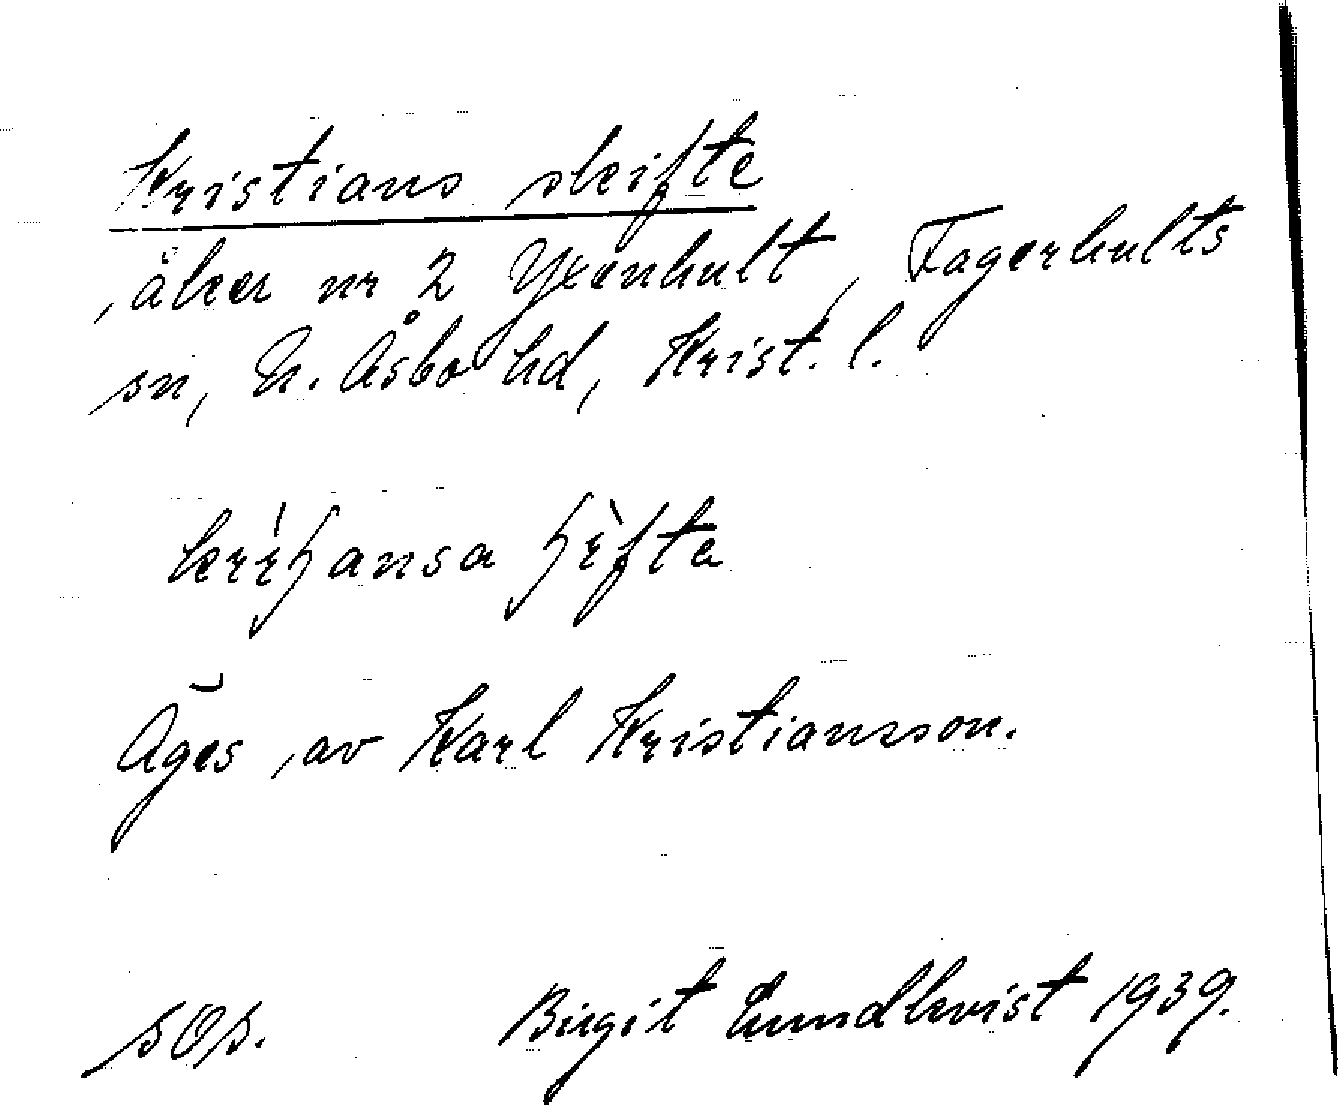 Kristians skifte
åker nr 2 Yxenhult, Fagerhults
sn, N. Åsbo hd, Krist. l.
Äges av Karl Kristiansson.
sOs. Birgit Lundkvist 1939.